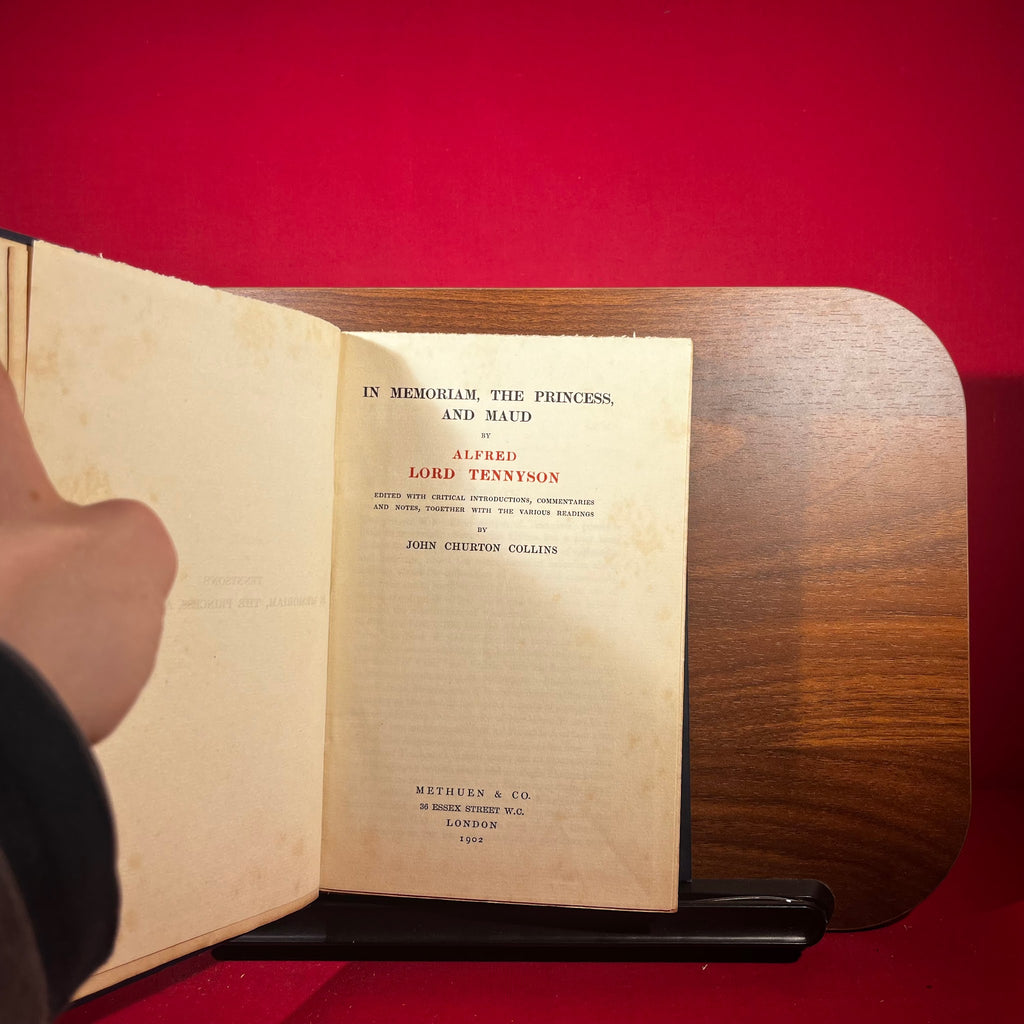 IN MEMORIAM, THE PRINCESS,
AND MAUD
BY
ALFRED
LORD TENNYSON
EDITED WITH CRITICAL INTRODUCTIONS, COMMENTARIES
AND NOTES, TOGETHER WITH THE VARIOUS READINGS
BY
JOHN CHURTON COLLINS
METHUEN & CO.
36 ESSEX STREET W.C.
LONDON
1902